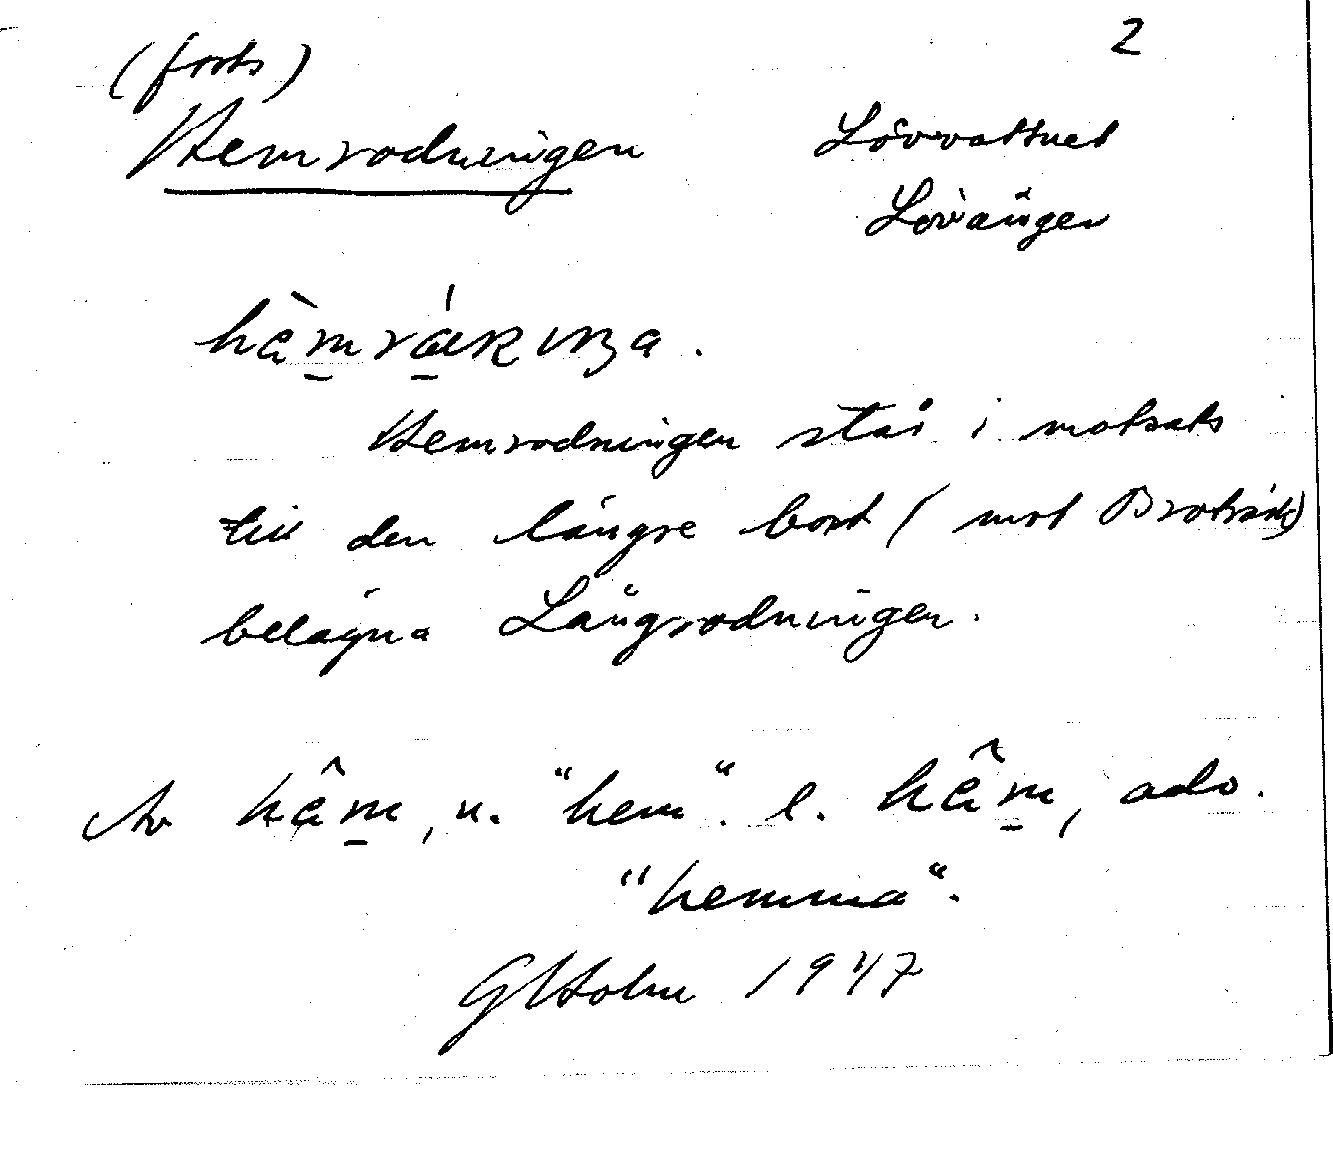 (forts) 2
Hemrodningen Lövvattnet
Lövånger
Hemrodningen står i motsats
till den längre bort (mot Broträsk)
belägna Långrodningen.
Av hêm, n. "hem". l. hêm, adv.
"hemma".
G Holm 1947